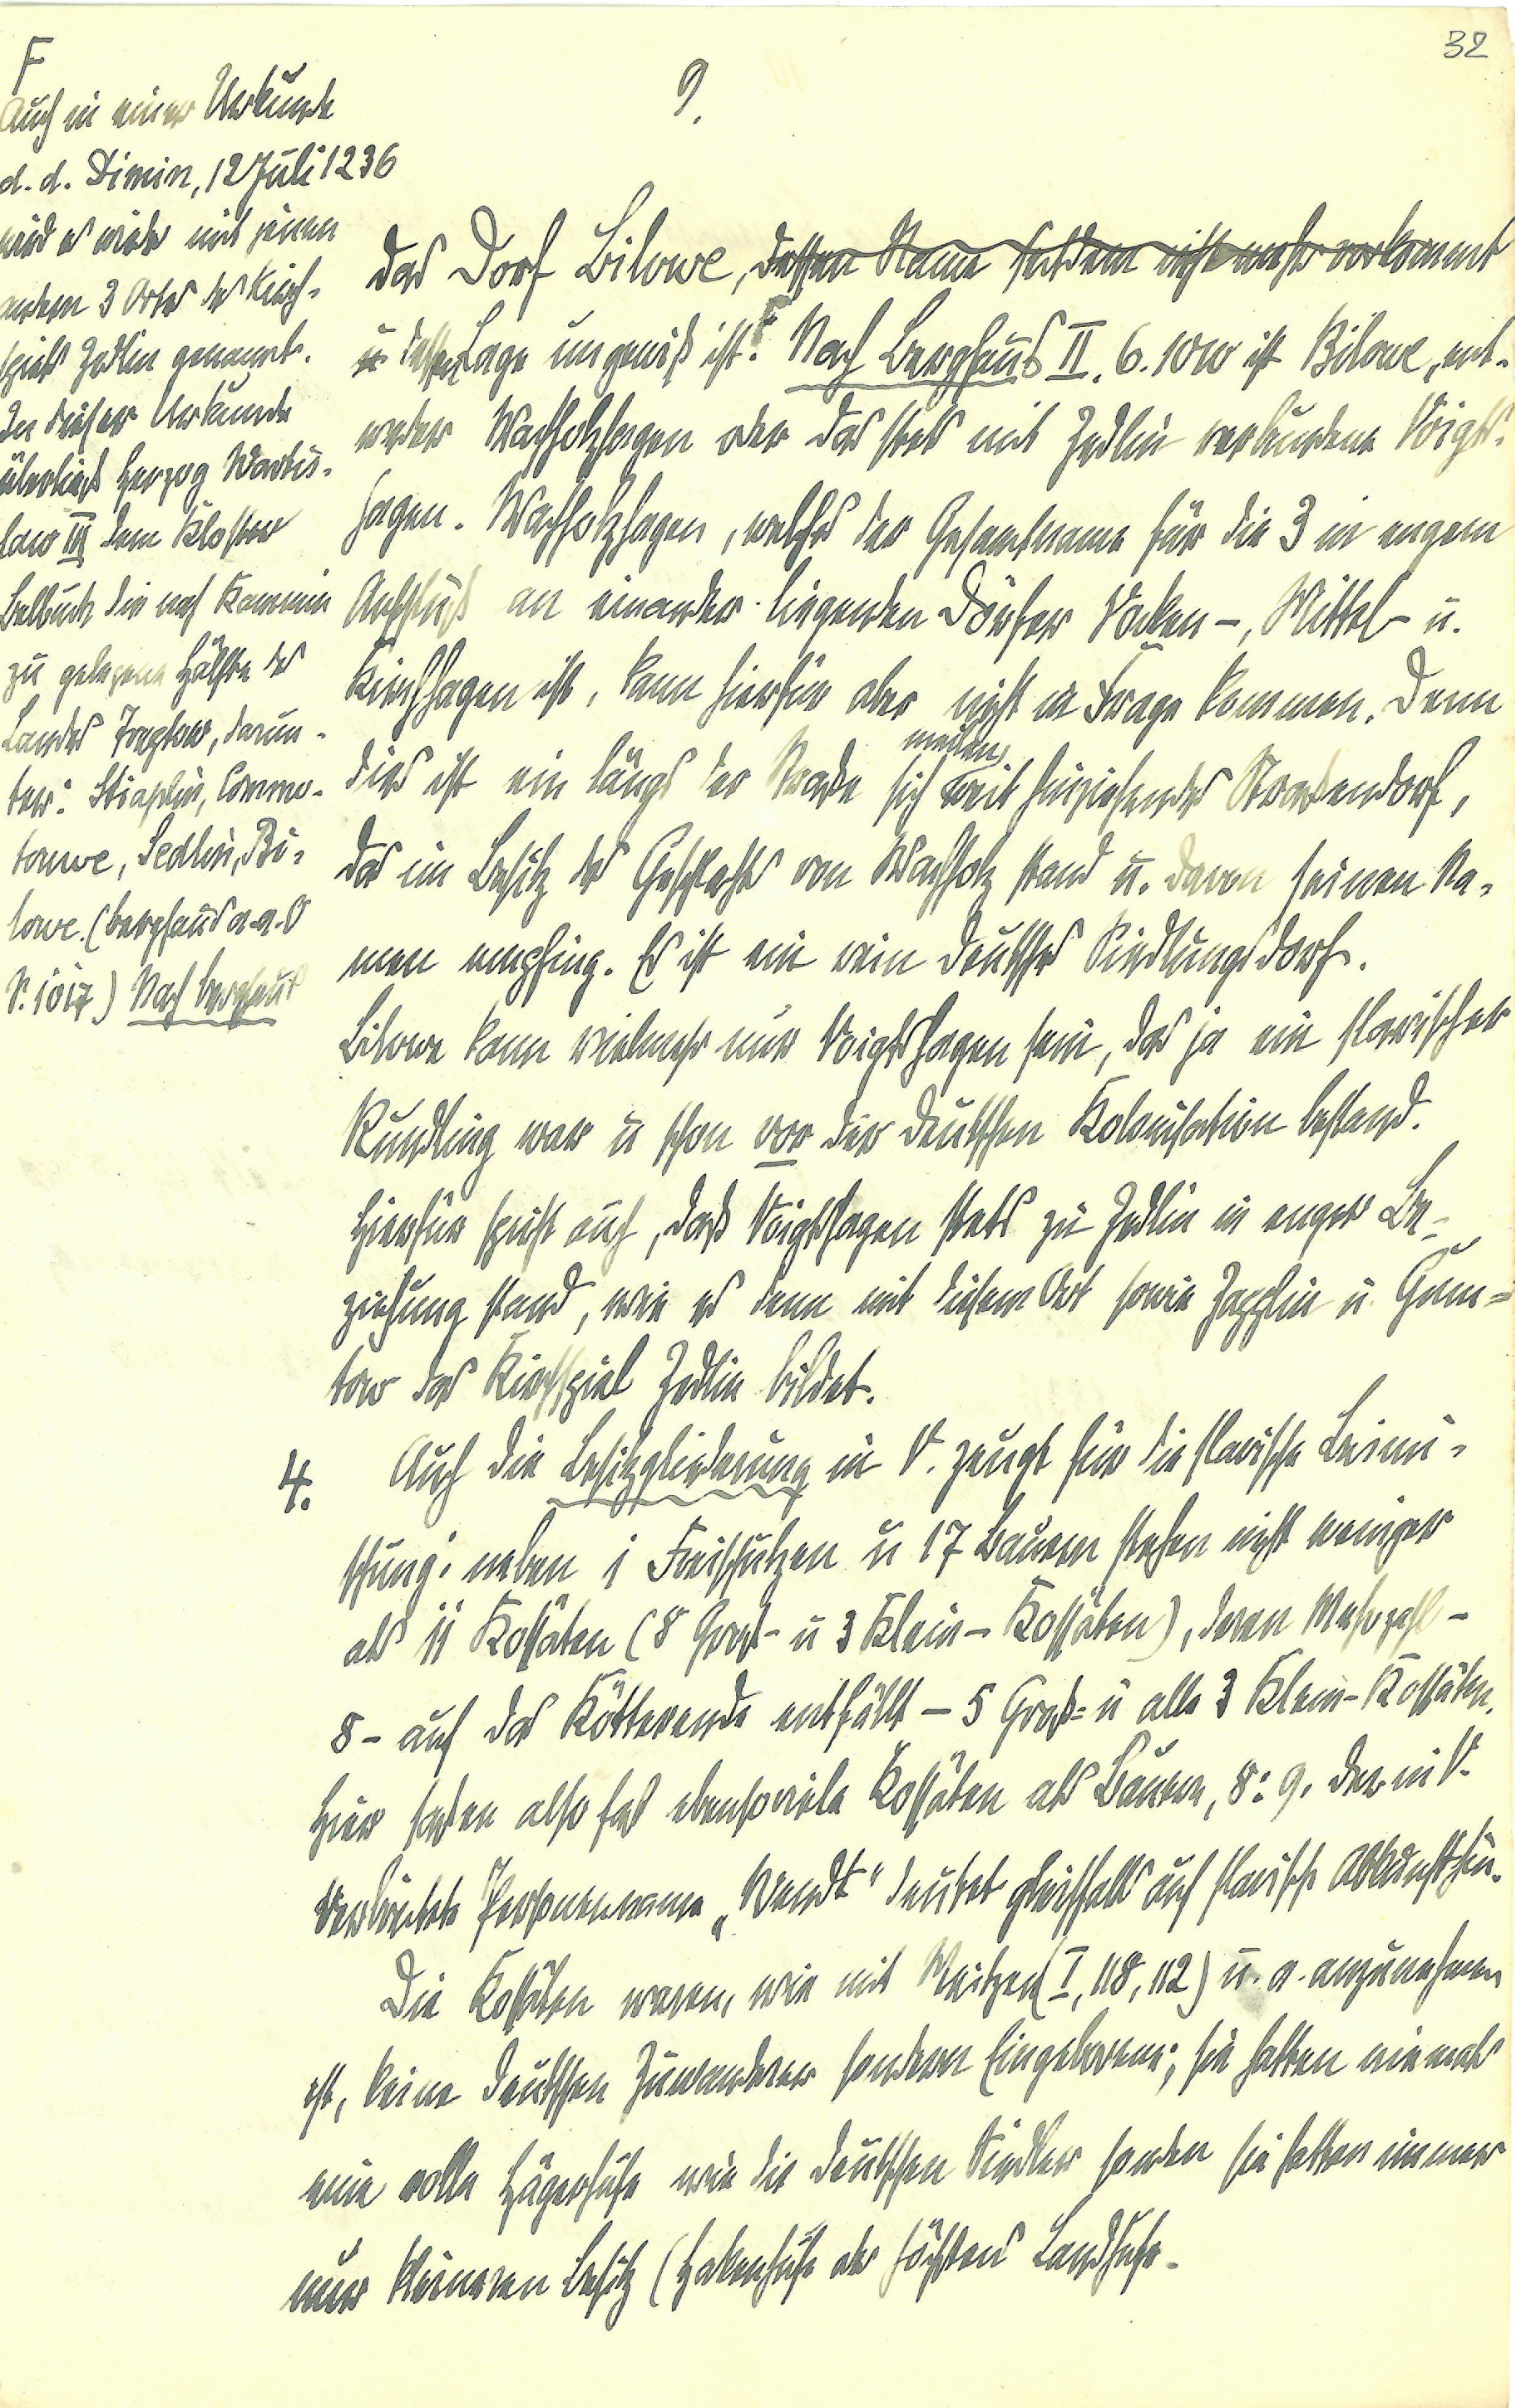 32
9.
F
Auch in einer Urkunde
d. d. Dimin, 12 Juli 1236
wird es wieder mit seinen
andern 3 Orten des Kirch-
spiels Zedlin genannt.
In dieser Urkunde
überließ Herzog Wartis-
law III dem Kloster
Belbuck die nach Kammin
zu gelegene Hälfte des
Landes Treptow, darun-
ter: Striaplin, Commo-
towe, Sedlin, Bi-
lowe. (Berghaus a. a. O
S. 1017) Nach Berghaus
das Dorf Bilowe, dessen Name seitdem nicht mehr vorkommt
u dessen Lage ungewiß ist. F Nach Berghaus II. 6. 1010 ist Bilowe „ent-
weder Wachholzhagen oder das stets mit Zedlin verbundene Voigts-
hagen. Wachholzhagen, welches der Gesamtname für die 3 in engem
Anschluß an einander liegenden Dörfer Vocken-, Mittel- u.
Kirchhagen ist, kann hierfür aber nicht in Frage kommen. Denn
dies ist ein längs der Straße sich meilenweit hinziehendes Straßendorf,
das im Besitz des Geschlechts von Wachholz stand u. davon seinen Na-
men empfing. Es ist ein rein deutsches Siedlungsdorf.
Bilowe kann vielmehr nur Voigtshagen sein, das ja ein slavischer
Rundling war u schon vor der deutschen Kolonisation bestand.
Hierfür spricht auch, daß Voigtshagen stets zu Zedlin in enger Be-
ziehung stand, wie es denn mit diesem Ort sowie Zapplin u Gum-
tow das Kirchspiel Zedlin bildet.
4. Auch die Besitzgliederung in V. zeugt für die slavische Beimi-
schung: neben 1 Freischulzen u 17 Bauern stehen nicht weniger
als 11 Kossäten (8 Groß- u 3 Klein-Kossäten), deren Mehrzahl -
8 - auf das Kötterende entfällt - 5 Groß- u alle 3 Klein-Kossäten.
Hier saßen also fast ebensoviele Kossäten als Bauern, 8:9. Der in V.
verbreitete Personenname „Wendt" deutet gleichfalls auf slavische Abkunft hin.
Die Kossäten waren, wie mit Meitzen (I, 118, 112) u. a. anzunehmen
ist, keine deutschen Zuwanderer sondern Eingeborene; sie hatten niemals
eine volle Hägerhufe wie die deutschen Siedler sondern sie hatten immer
nur kleineren Besitz (Hakenhufe oder höchstens Landhufe.